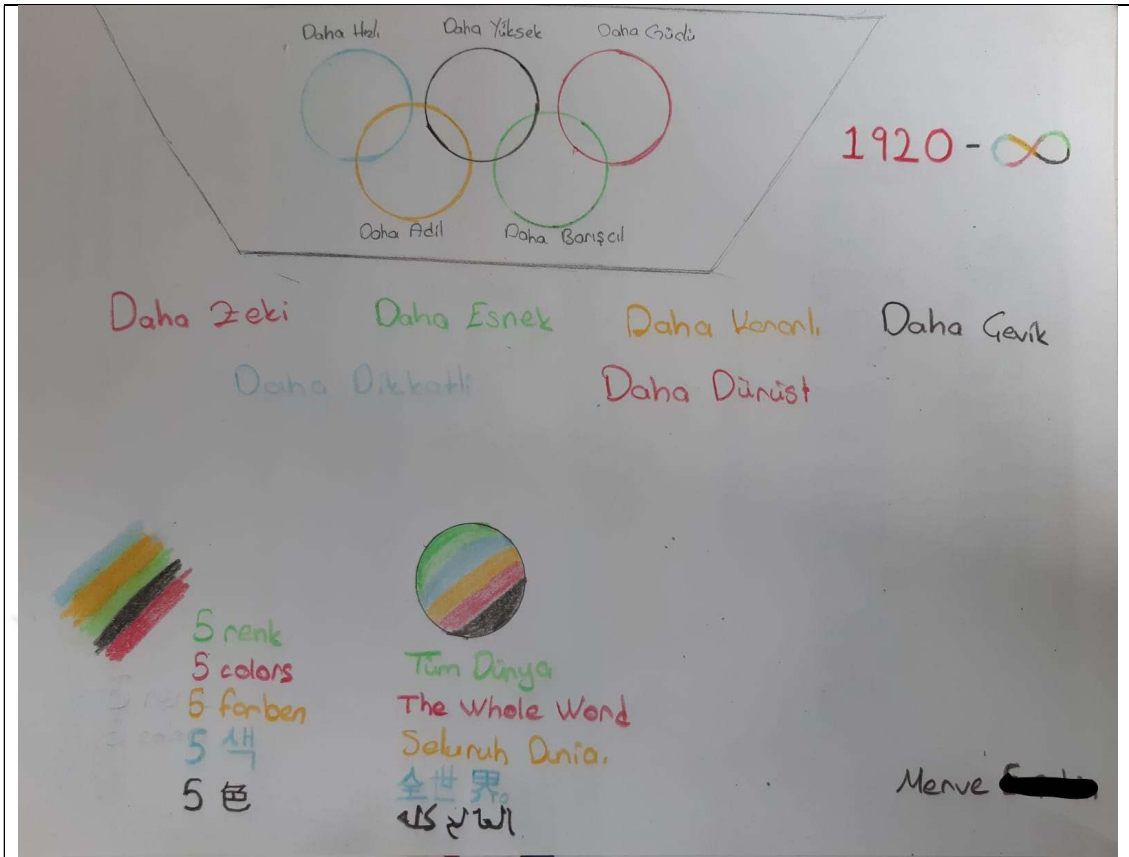 Daha Hızlı Daha Yüksek Daha Güçlü
Daha Adil Daha Barışcıl
1920-∞
Daha Zeki Daha Esnek Daha Kararlı Daha Çevik
Daha Dikkatli Daha Dürüst
5 renk
5 colors
5 farben
5 색
5 色
Tüm Dünya
The Whole Word
Seluruh Dunia.
全世界。
العالم كله
Merve